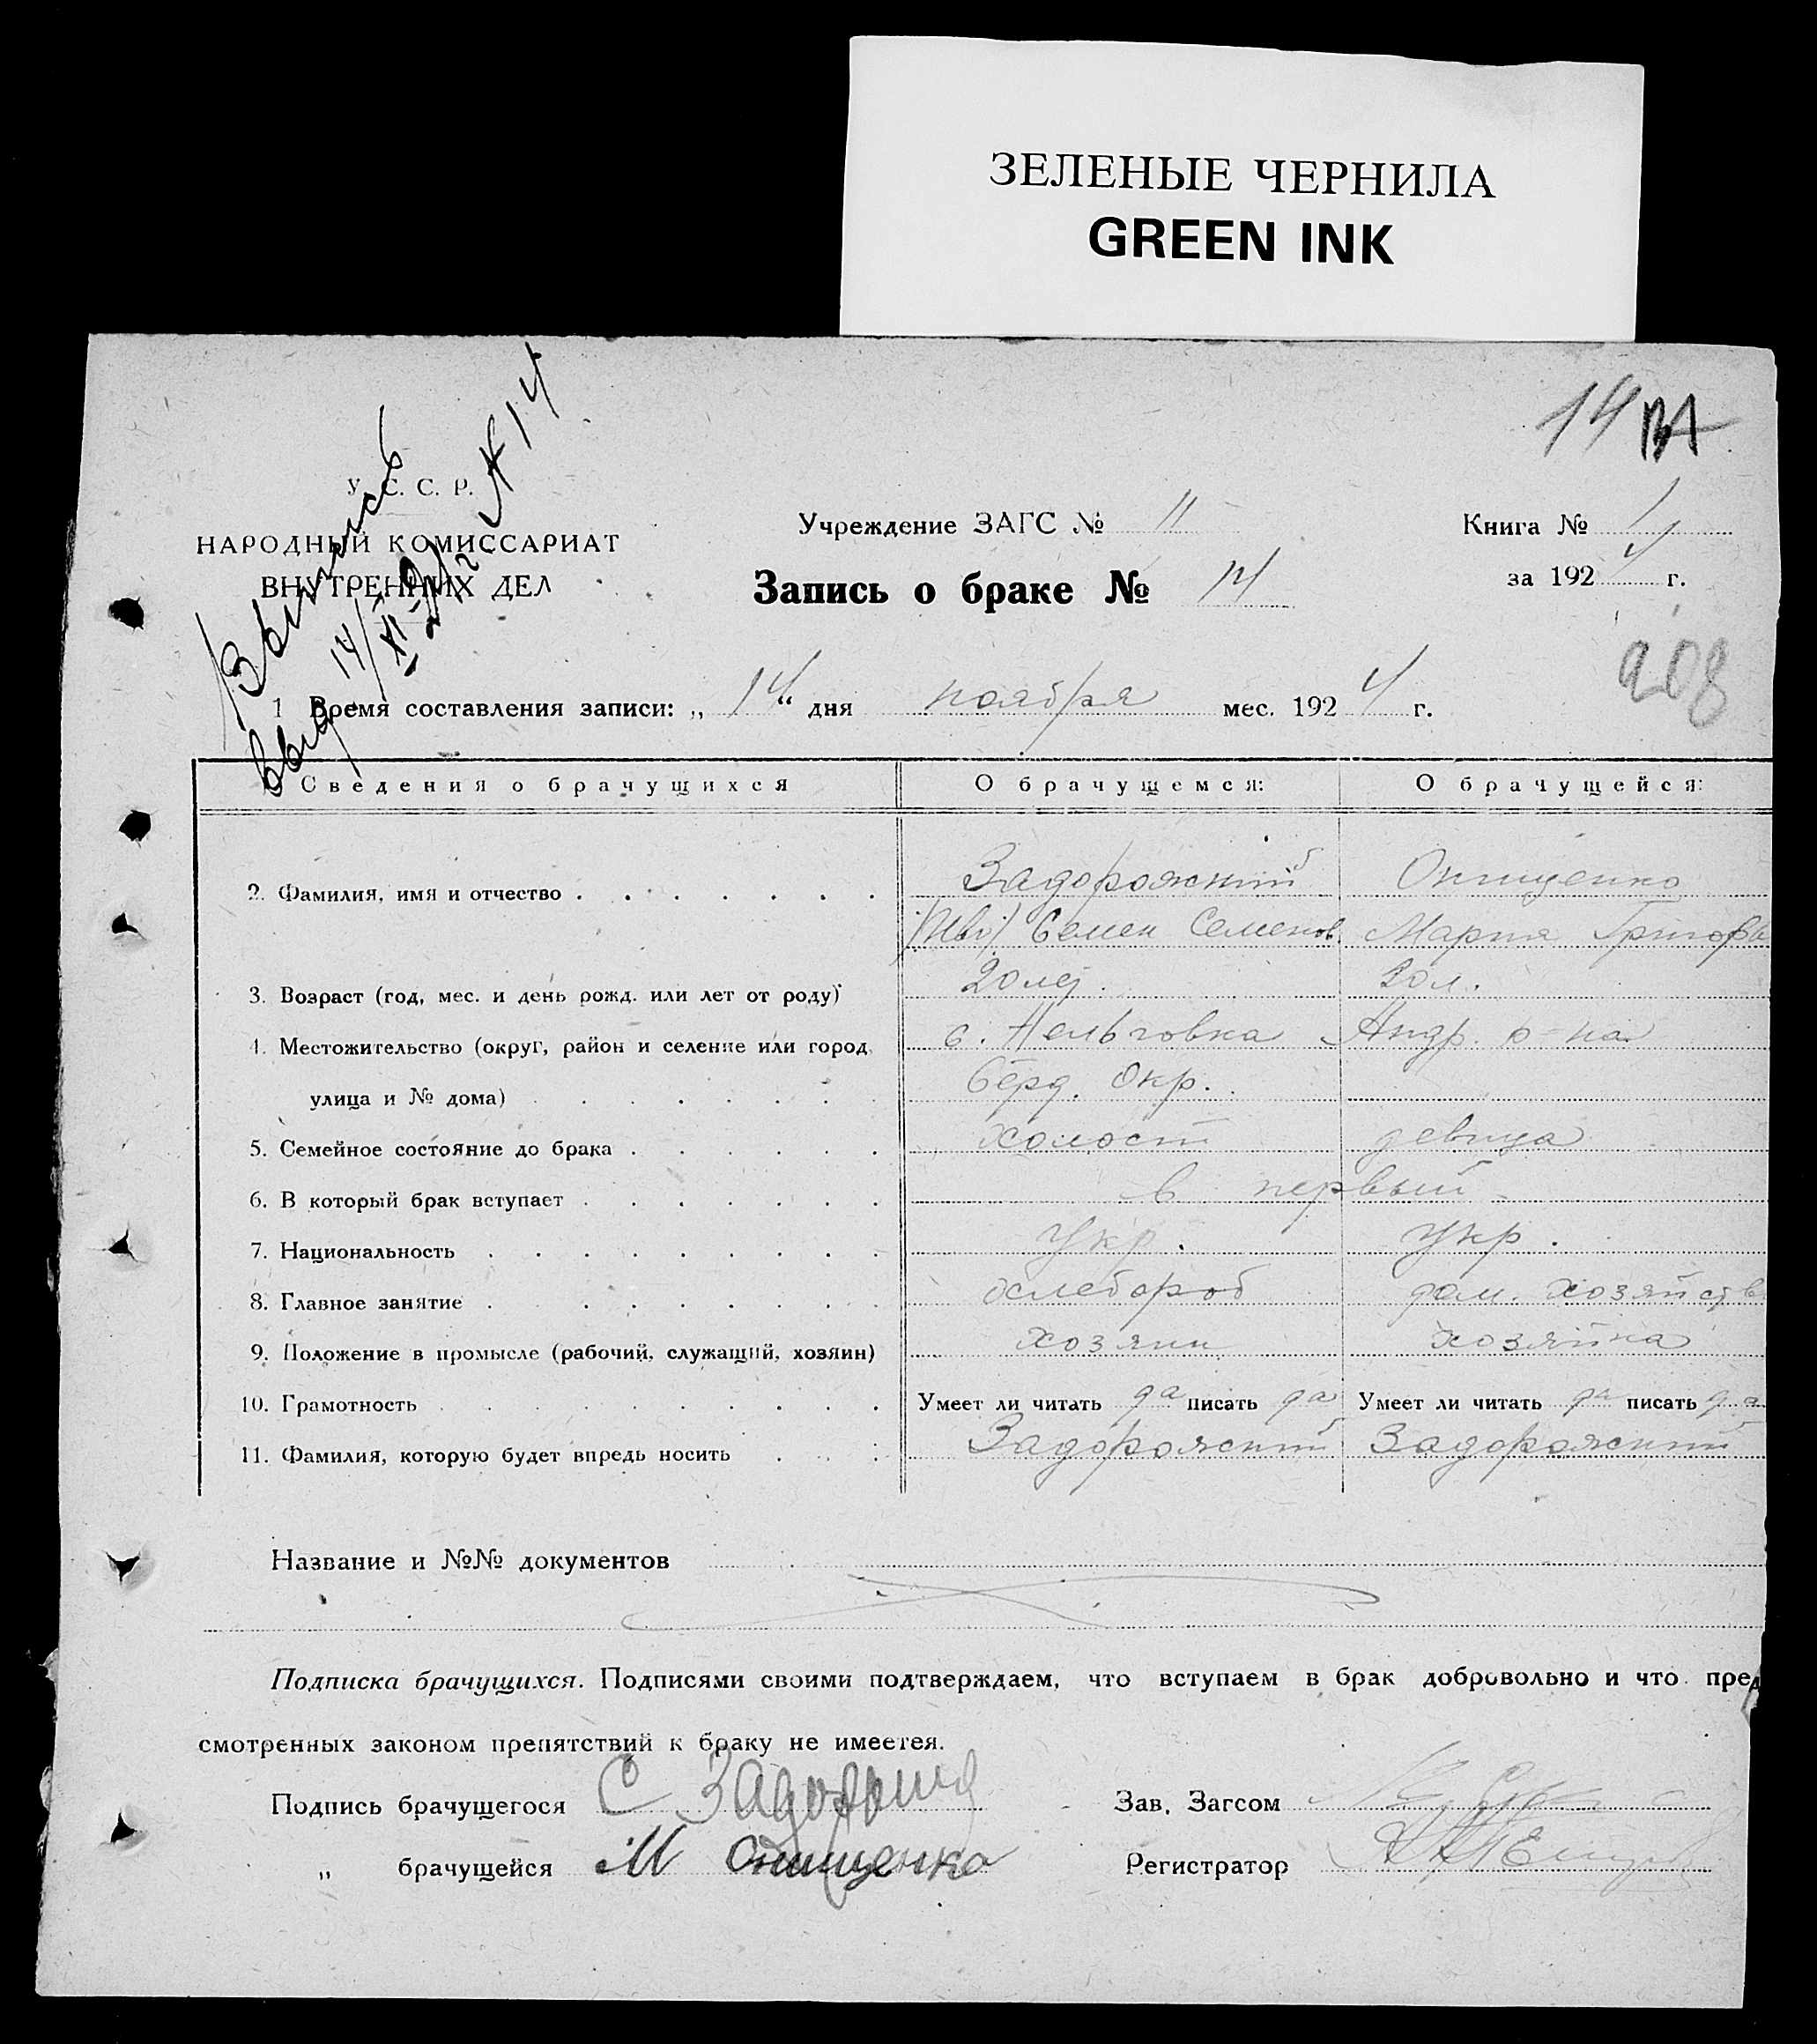 ЗЕЛЕНЫЕ ЧЕРНИЛА
GREEN INK
14
Выпись
выд. 14/XI 24 г. № 14
У. С. С. Р.
НАРОДНЫЙ КОМИССАРИАТ
ВНУТРЕННИХ ДЕЛ
Учреждение ЗАГС № 11
Книга № 1
за 1924 г.
Запись о браке № 14
208
1 Время составления записи: „ 14 “ дня ноября мес. 1924 г.
Сведения о брачущихся О брачущемся: О брачущейся:
2. Фамилия, имя и отчество Задорожний Онищенко
Семен Семенов. Мария Григорьв
3. Возраст (год, мес. и день рожд. или лет от роду) 20 лет. 20 л.
4. Местожительство (округ, район и селение или город, с. Нельговка Андр. р-на
улица и № дома) Берд. Окр.
5. Семейное состояние до брака холост девица
6. В который брак вступает в первый
7. Национальность Укр. Укр.
8. Главное занятие хлебороб дом. хозяйств
9. Положение в промысле (рабочий, служащий, хозяин) хозяин хозяйка
10. Грамотность Умеет ли читать да писать да Умеет ли читать да писать да
11. Фамилия, которую будет впредь носить Задорожний Задорожний
Название и №№ документов
Подписка брачущихся. Подписями своими подтверждаем, что вступаем в брак добровольно и что пред
смотренных законом препятствий к браку не имеется.
Подпись брачущегося С Задорожний Зав. Загсом
„ брачущейся М Онищенко Регистратор